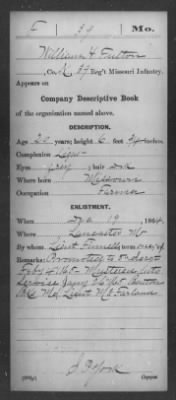 F 39 Mo.
William H Fulton
, Co. K, 39 Reg't Missouri Infantry.
Appears on
Company Descriptive Book
of the organization named above.
DESCRIPTION.
Age 20 years; height 6 feet inches.
Complexion Light
Eyes Grey; hair Dark
Where born Missouri
Occupation Farmer
ENLISTMENT.
When 19, 1864.
Where Lancaster Mo
By whom Lieut term one y'r
Remarks: Promoted to
Feb 4 1865 Mustered into
service
Lieut McFarland
Copyist.